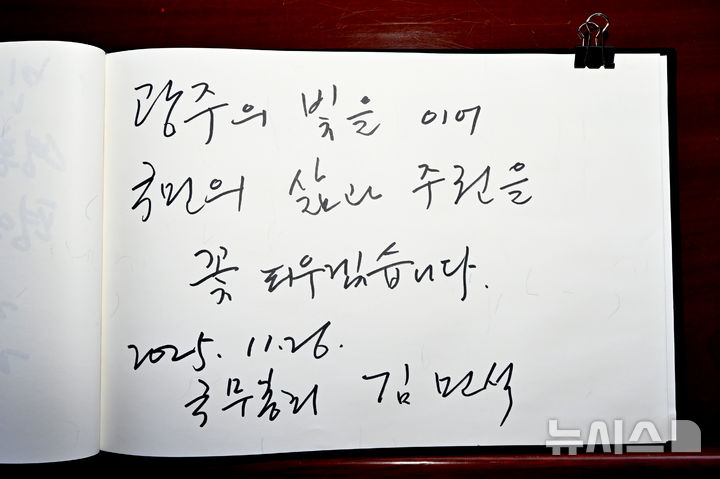 광주의 빛을 이어
국민의 삶과 주권을
꽃 피우겠습니다.
2025. 11. 26.
국무총리 김민석
뉴시스